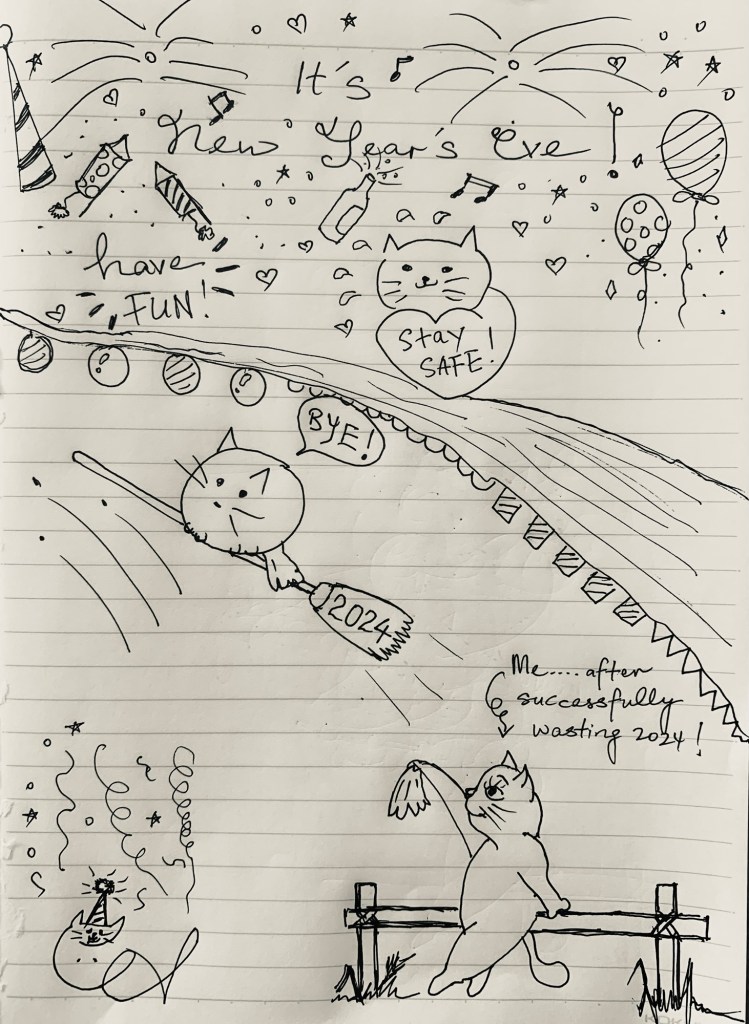 It's
New Year's Eve !
have
FUN!
Stay
SAFE!
BYE!
2024
Me.... after
successfully
wasting 2024!